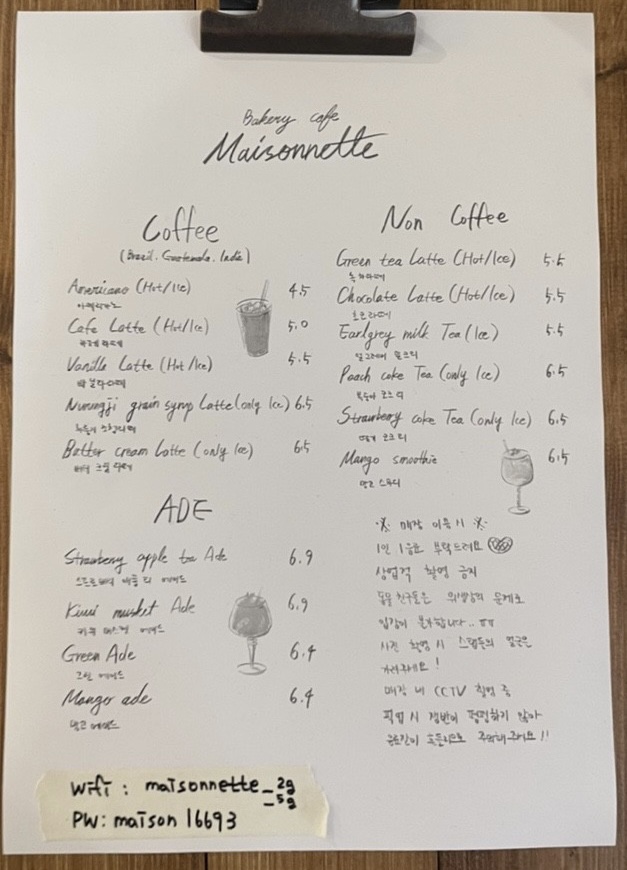 Bakery cafe
Maisonnette
Coffee
(Brazil. Guatemala. India)
Americano (Hot/Ice) 4.5
아메리카노
Cafe Latte (Hot/Ice) 5.0
카페라떼
Vanilla Latte (Hot/Ice) 5.5
바닐라라떼
Nurungji grain syrup Latte (only Ice) 6.5
Butter cream Latte (only Ice) 6.5
버터 크림 라떼
ADE
Strawberry apple tea Ade 6.9
스트로베리 애플 티 에이드
Kiwi musket Ade 6.9
키위 머스켓 에이드
Green Ade 6.4
그린 에이드
Mango ade 6.4
망고 에이드
Non Coffee
Green tea Latte (Hot/Ice) 5.5
녹차라떼
Chocolate Latte (Hot/Ice) 5.5
초코라떼
Earlgrey milk Tea (Ice) 5.5
얼그레이 밀크티
Peach coke Tea (only Ice) 6.5
복숭아 코크티
Strawberry coke Tea (only Ice) 6.5
딸기 코크티
Mango smoothie 6.5
망고 스무디
※ 매장 이용 시 ※
1인 1음료 부탁드려요
상업적 촬영 금지
동물 친구들은 위생상의 문제로
입장이 불가합니다.. ㅠㅠ
사진 촬영 시 스탭들의 얼굴은
가려주세요!
매장 내 CCTV 촬영 중
픽업 시 쟁반이 평평하지 않아
음료잔이 흔들리므로 주의해주세요!!
Wifi : maisonnette_2g
_5g
PW: maison16693